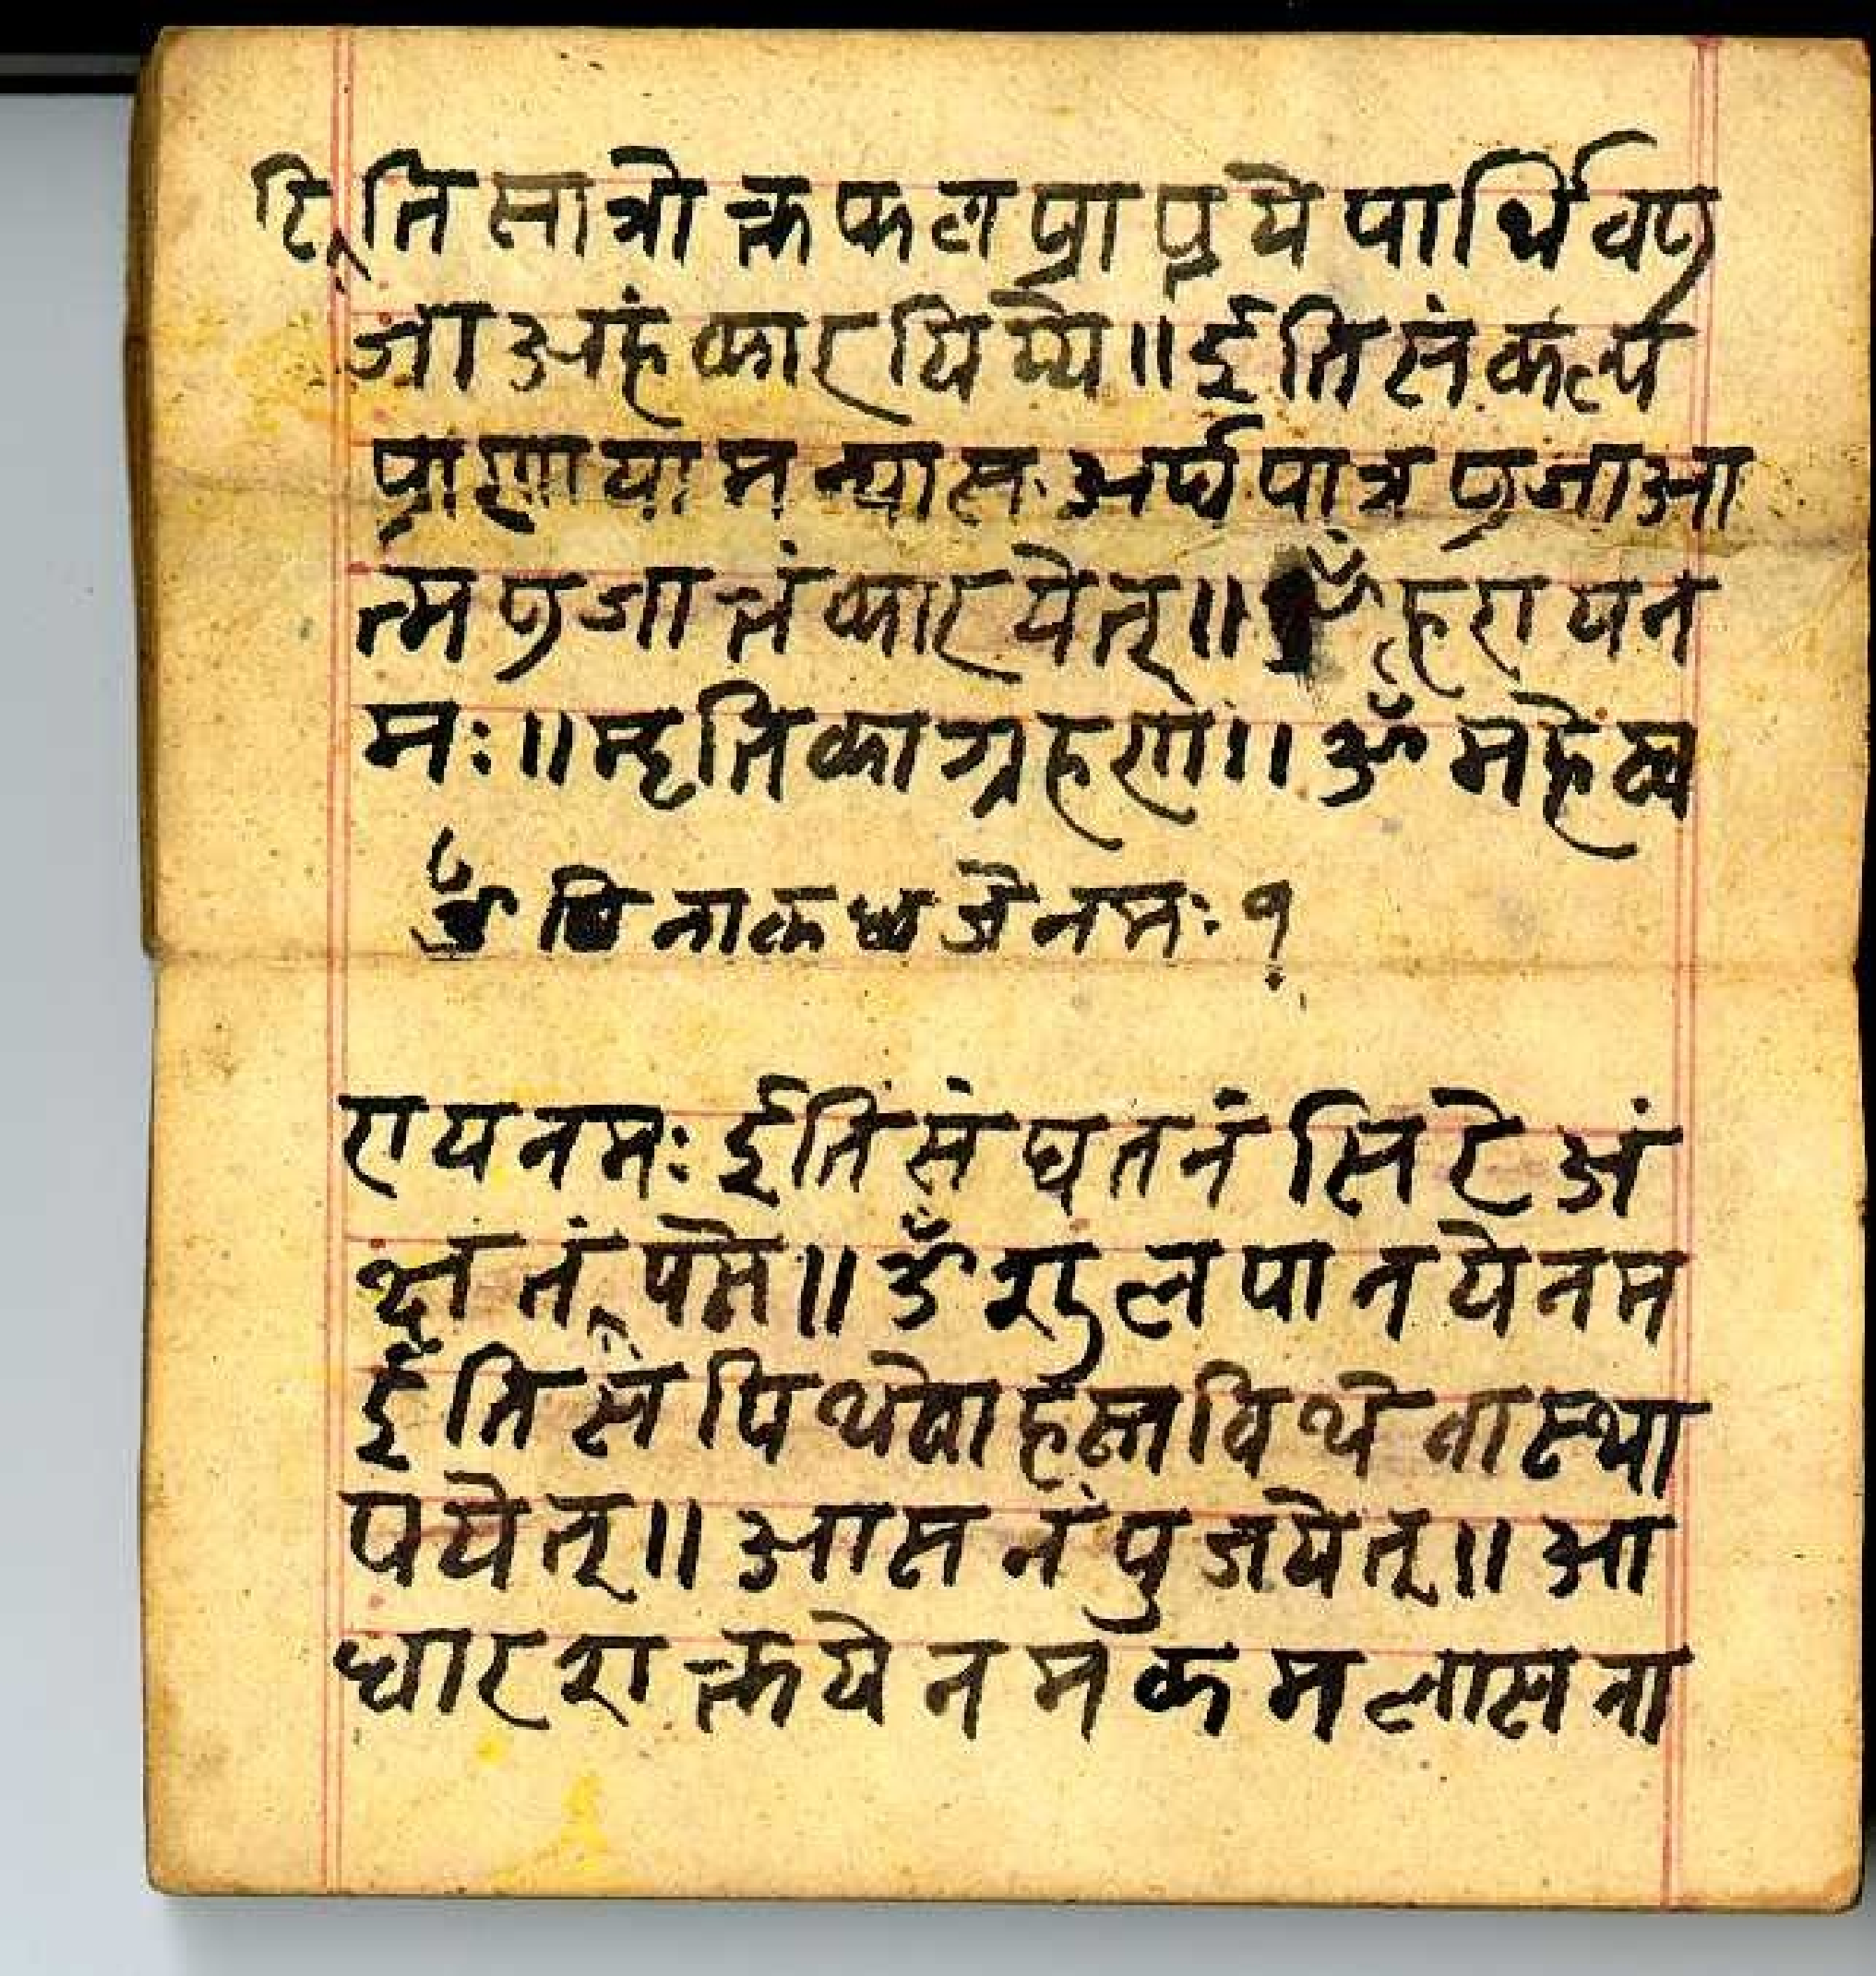 ति सात्रोक्त फल प्राप्तये पार्थिवपू
जा अहं कारयिष्ये॥ ईति संकल्प
प्राणायाम न्यास अर्घपात्र पूजा आ
त्म पूजा त्तं कारयेत्॥ ॐ हराय न
मः॥ मृतिका ग्रहणं॥ ॐ महेश्व
ॐ पिनाकध्वजे नमः १
राय नमः ईति संघतनं सिटे अं
क्षतं पते॥ ॐ शुलपानये नम
ईति संपिथेवा हस्तविथे वा स्था
पयेत्॥ आसनं पुजयेत्॥ आ
धार शक्तये नम कमलासना